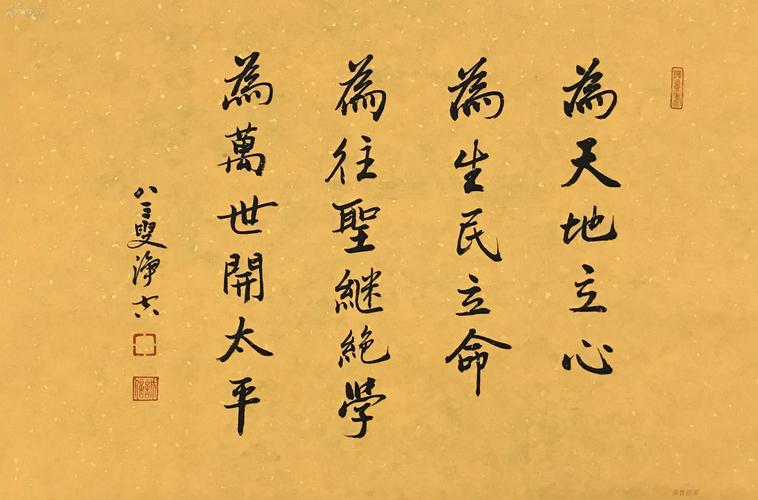 為天地立心
為生民立命
為往聖繼絶學
為萬世開太平
八三叟淨空